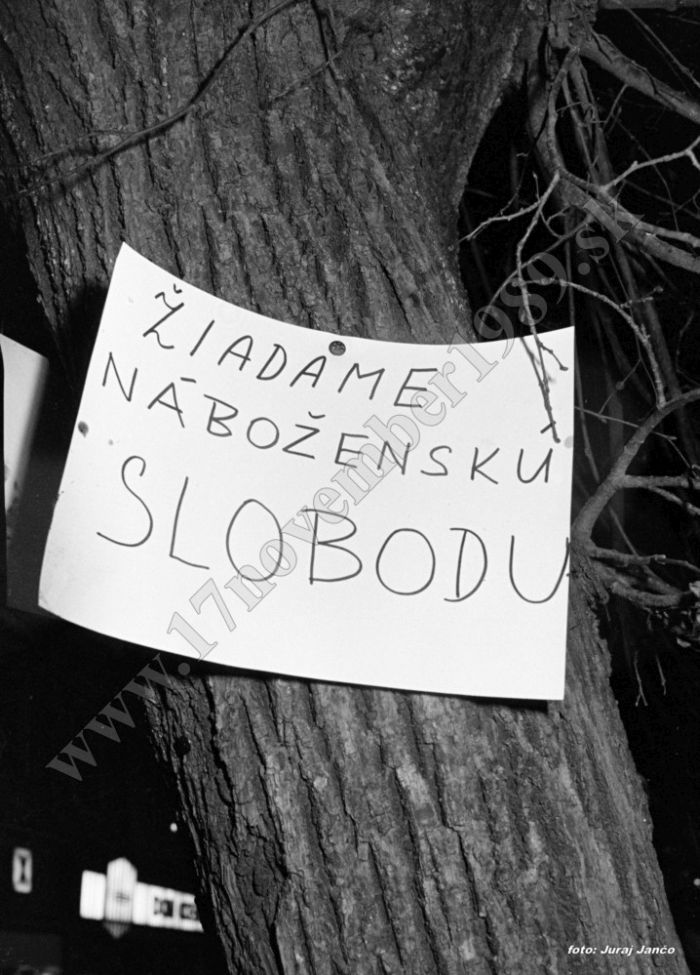 ŽIADAME
NÁBOŽENSKÚ
SLOBODU
www.17november1989.sk
foto: Juraj Jančo